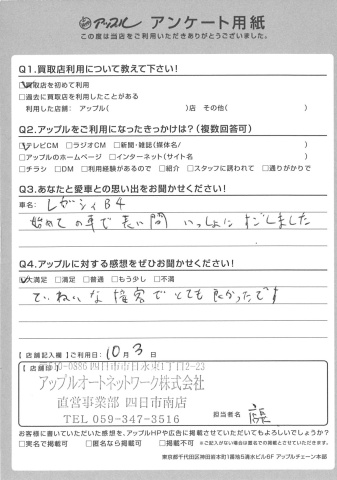 アップル アンケート用紙
この度は当店をご利用いただきありがとうございました。
Q1.買取店利用について教えて下さい!
☑買取店を初めて利用
□過去に買取店を利用したことがある
利用した店舗: アップル( )店 その他( )
Q2.アップルをご利用になったきっかけは?(複数回答可)
☑テレビCM □ラジオCM □新聞・雑誌(媒体名/ )
□アップルのホームページ □インターネット(サイト名 )
□チラシ □DM □利用経験があるので □紹介 □スタッフに誘われて □通りがかりで
Q3.あなたと愛車との思い出をお聞かせください!
車名: レガシィB4
始めての車で長い間 いっしょにすごしました
Q4.アップルに対する感想をぜひお聞かせください!
☑大満足 □満足 □普通 □もう少し □不満
ていねいな接客でとても良かったです
【店舗記入欄】ご利用日: 10月3日
【店舗印】
〒510-0886 四日市市日永東1丁目2-23
アップルオートネットワーク株式会社
直営事業部 四日市南店
TEL 059-347-3516
担当者名
お客様に書いていただいた感想を、アップルHPや広告に掲載させていただいてもよろしいでしょうか?
□実名で掲載可 □匿名なら掲載可 □掲載不可 ※ご記入がない場合は匿名での掲載とさせていただきます。
東京都千代田区神田岩本町1番地5清水ビル6F アップルチェーン本部